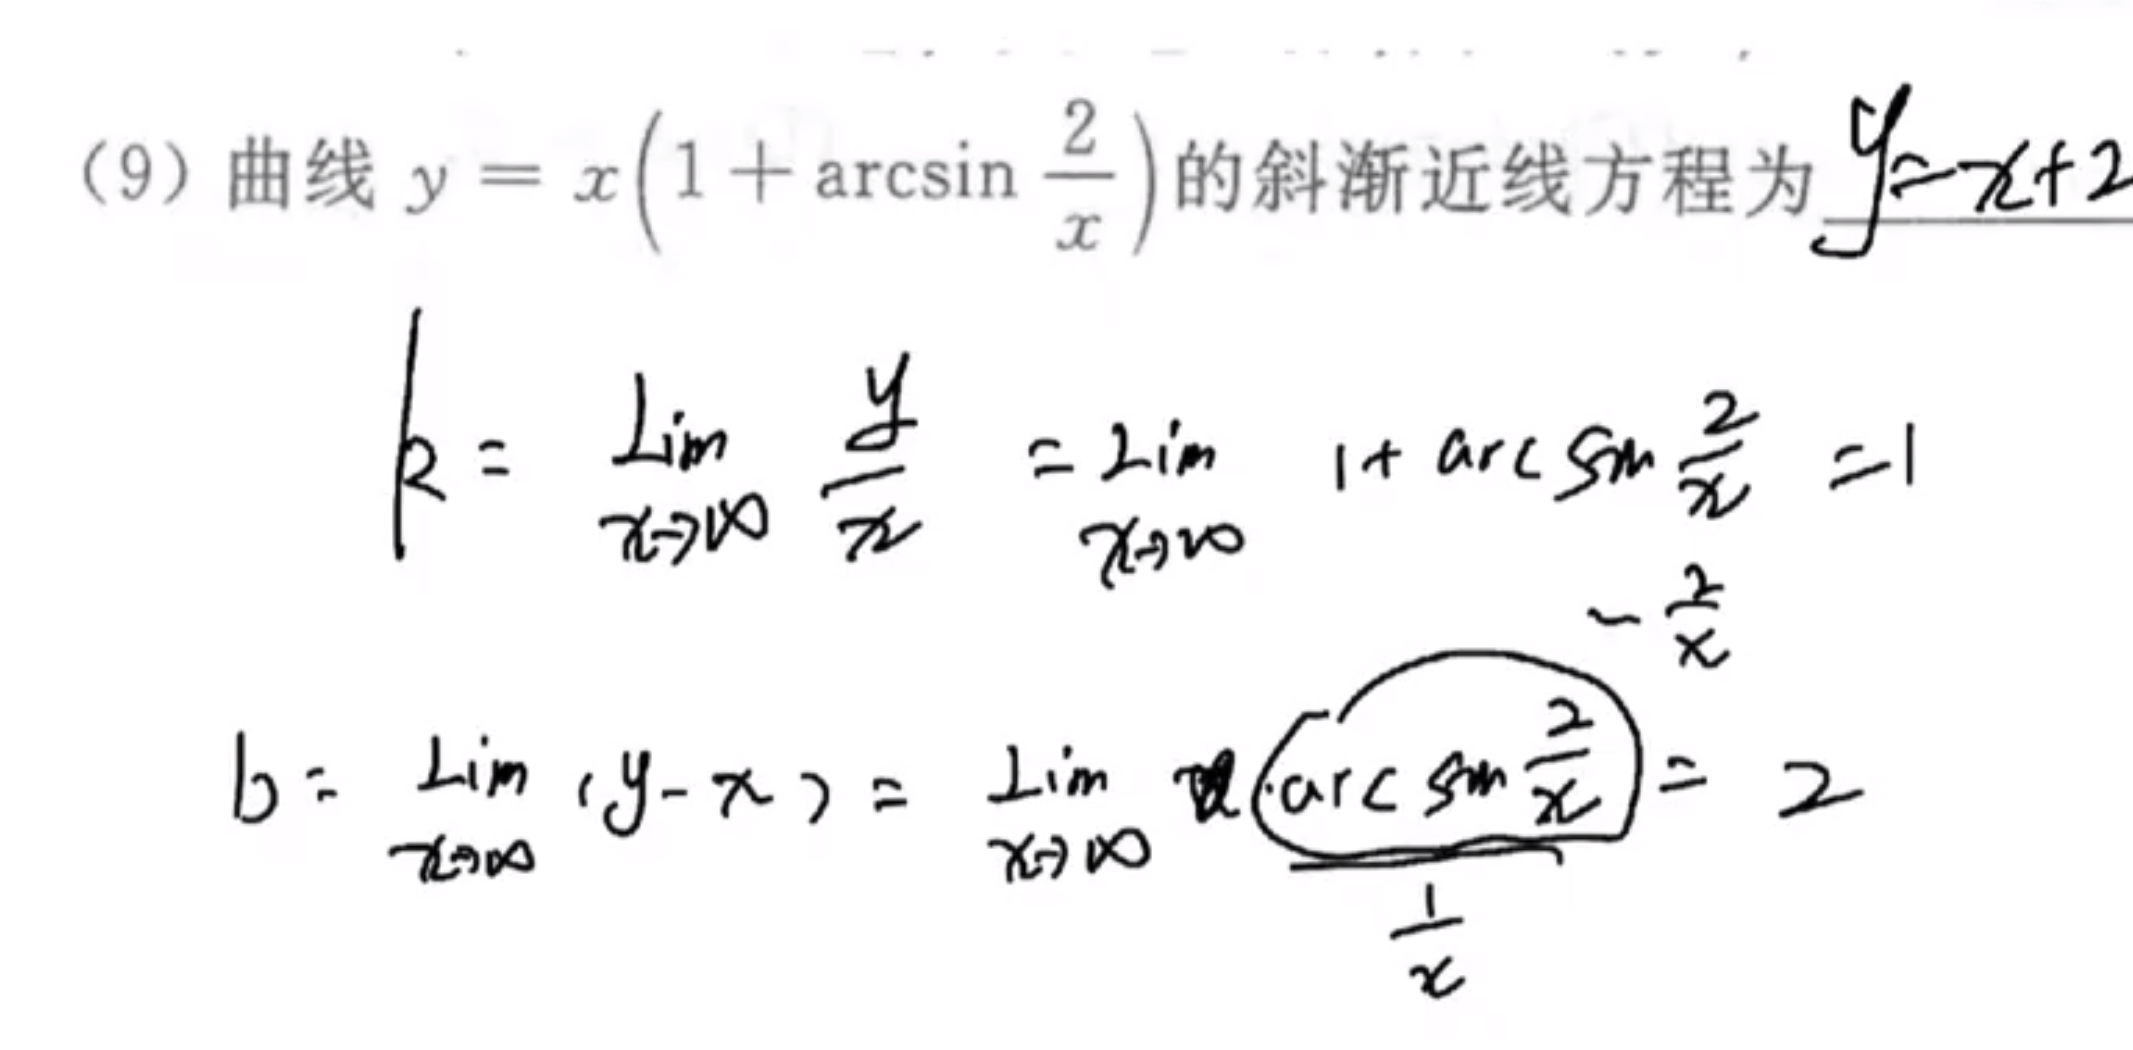 (9) 曲线 y = x(1 + arcsin 2/x) 的斜渐近线方程为 y=x+2
k = Lim x→∞ y/x = Lim x→∞ 1+ arcsin 2/x =1
~ 2/x
b= Lim x→∞ (y-x) = Lim x→∞ arcsin 2/x = 2
1/x